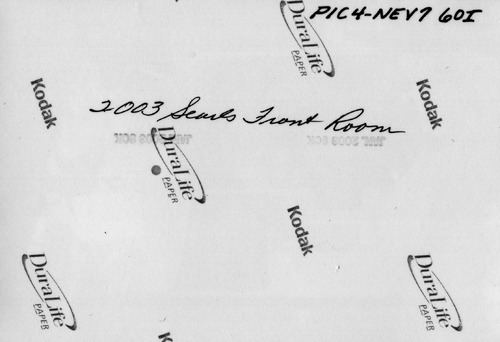 PIC4-NEV7 60I
DuraLife
PAPER
Kodak
Kodak
2003 Searls Front Room
DuraLife
PAPER
Kodak
DuraLife
PAPER
DuraLife
PAPER